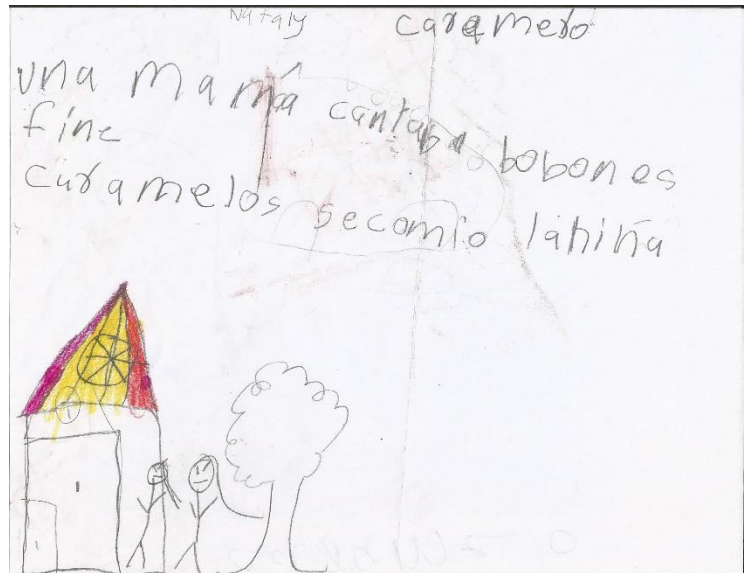 Nataly
caramero
una mamá cantaba bobones
fine
caramelos secomio laniña